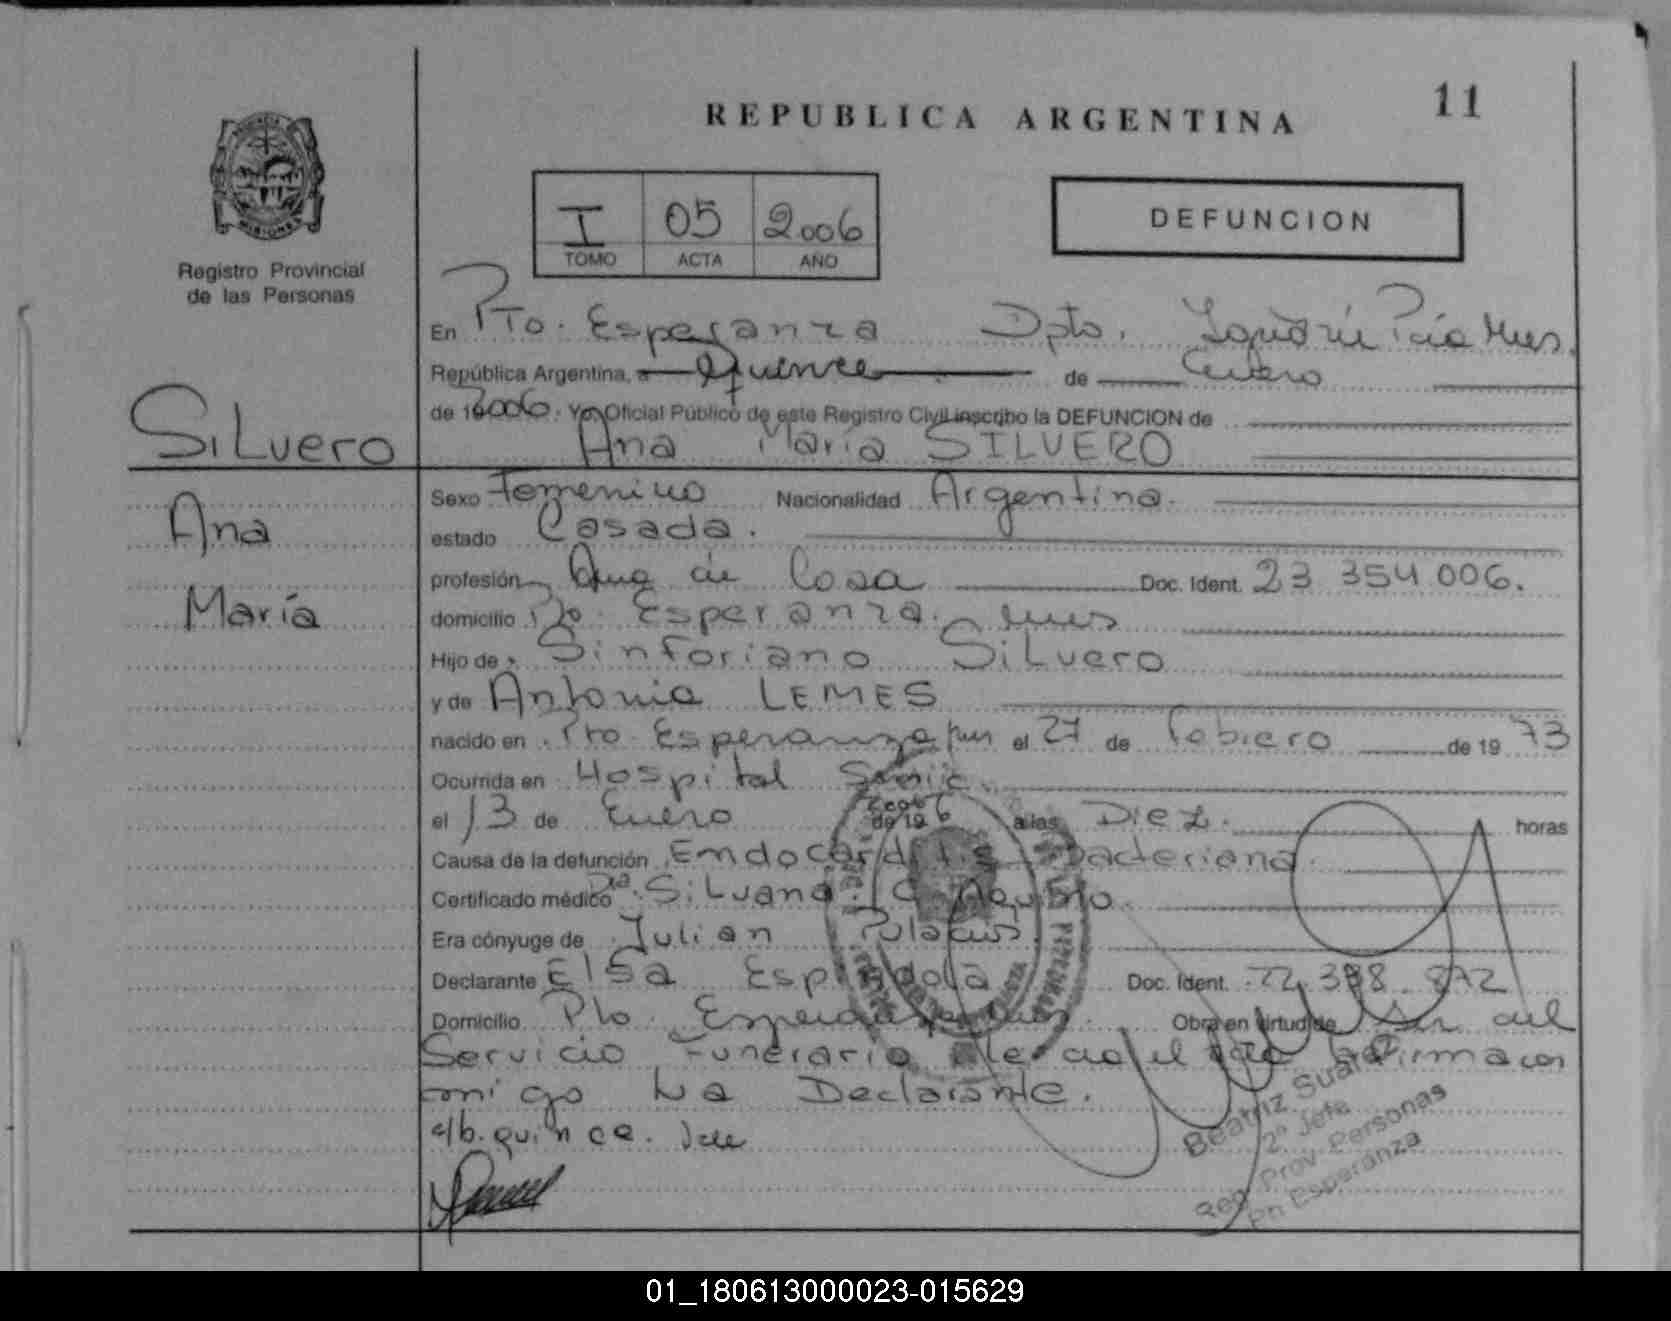 11
REPUBLICA ARGENTINA
I 05 2006
TOMO ACTA AÑO
DEFUNCION
Registro Provincial
de las Personas
En Pto. Esperanza Dpto.
República Argentina, a Quince de Enero
de 2006. Yo, Oficial Público de este Registro Civil inscribo la DEFUNCION de
Ana María SILVERO
SiLvero
Ana
María
Sexo Femenino Nacionalidad Argentina.
estado Casada.
profesión Ama de Casa Doc. Ident. 23 354 006.
domicilio Pto. Esperanza. Mnes
Hijo de Sinforiano SiLvero
y de Antonia LEMES
nacido en Pto Esperanza Mnes el 27 de Febrero de 19 73
Ocurrida en Hospital Samic.
el 13 de Enero 2006 de 19 a las Diez. horas
Causa de la defunción Endocarditis Bacteriana.
Certificado médico Dra. SiLvana. C.
Era cónyuge de Julian
Declarante Elsa Espindola Doc. Ident. 872
Domicilio Pto. Esperanza Mnes. Obra en virtud de Ser del
Servicio Funerario firma con
migo La Declarante.
quince. Vale
Beatriz Suarez
2º Jefe
Reg. Prov. Personas
Pto Esperanza
01_180613000023-015629